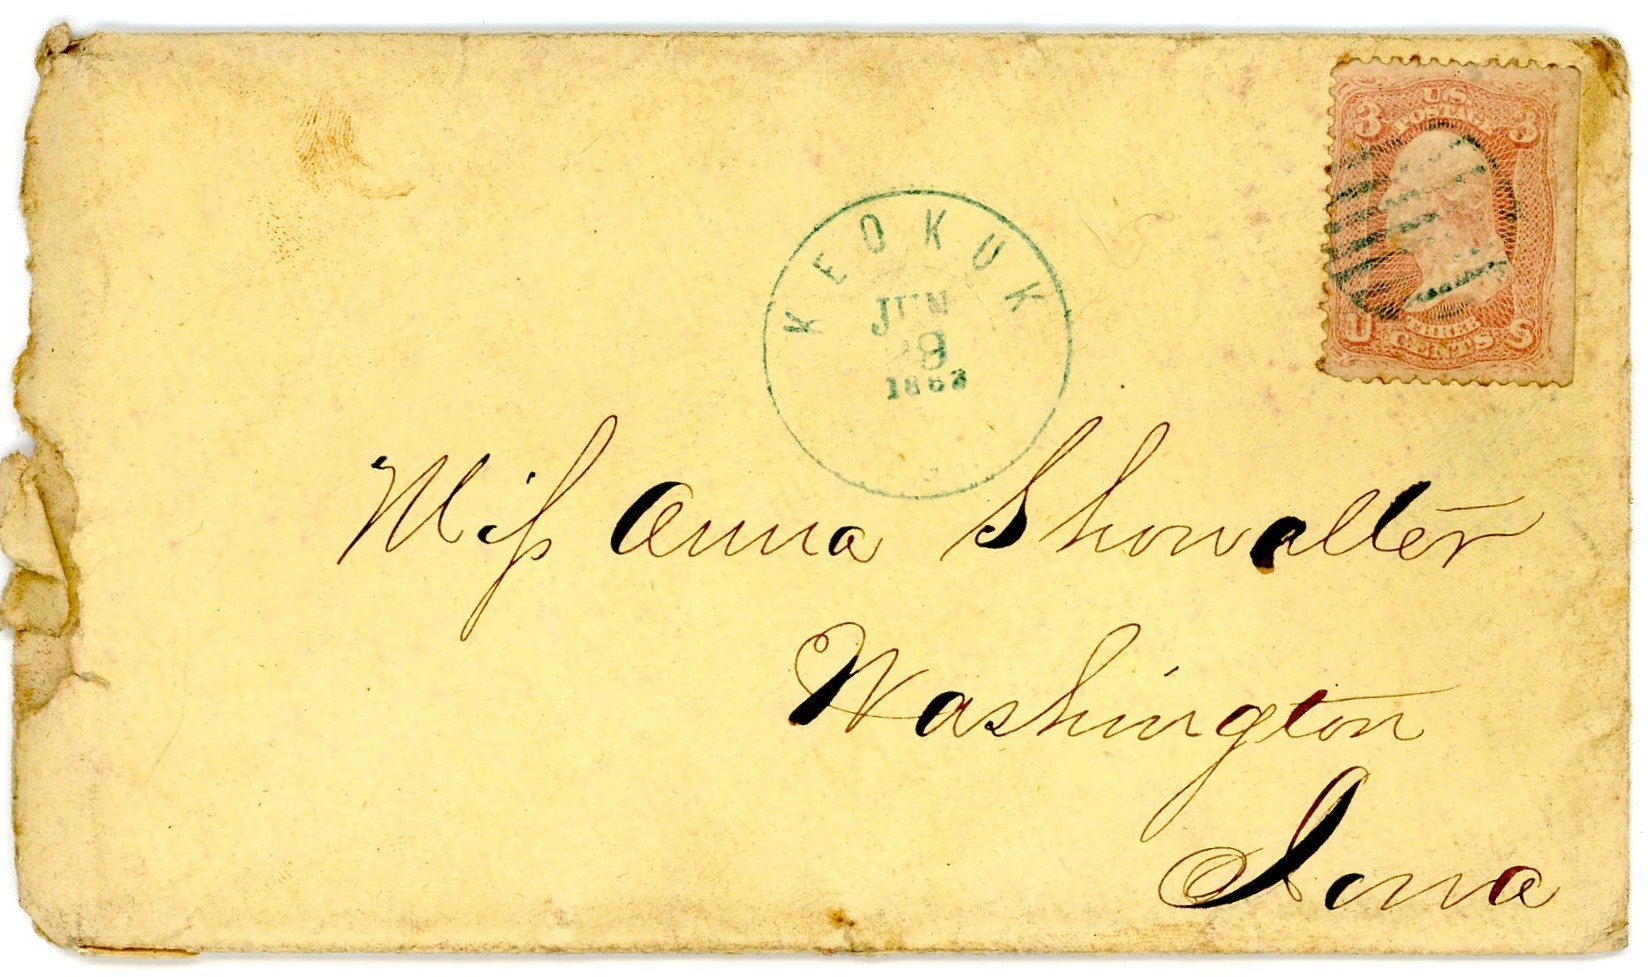 U.S.
POSTAGE
3 3
U THREE S
CENTS
KEOKUK
JUN
28
1863
Miſs Anna Showalter
Washington
Iowa